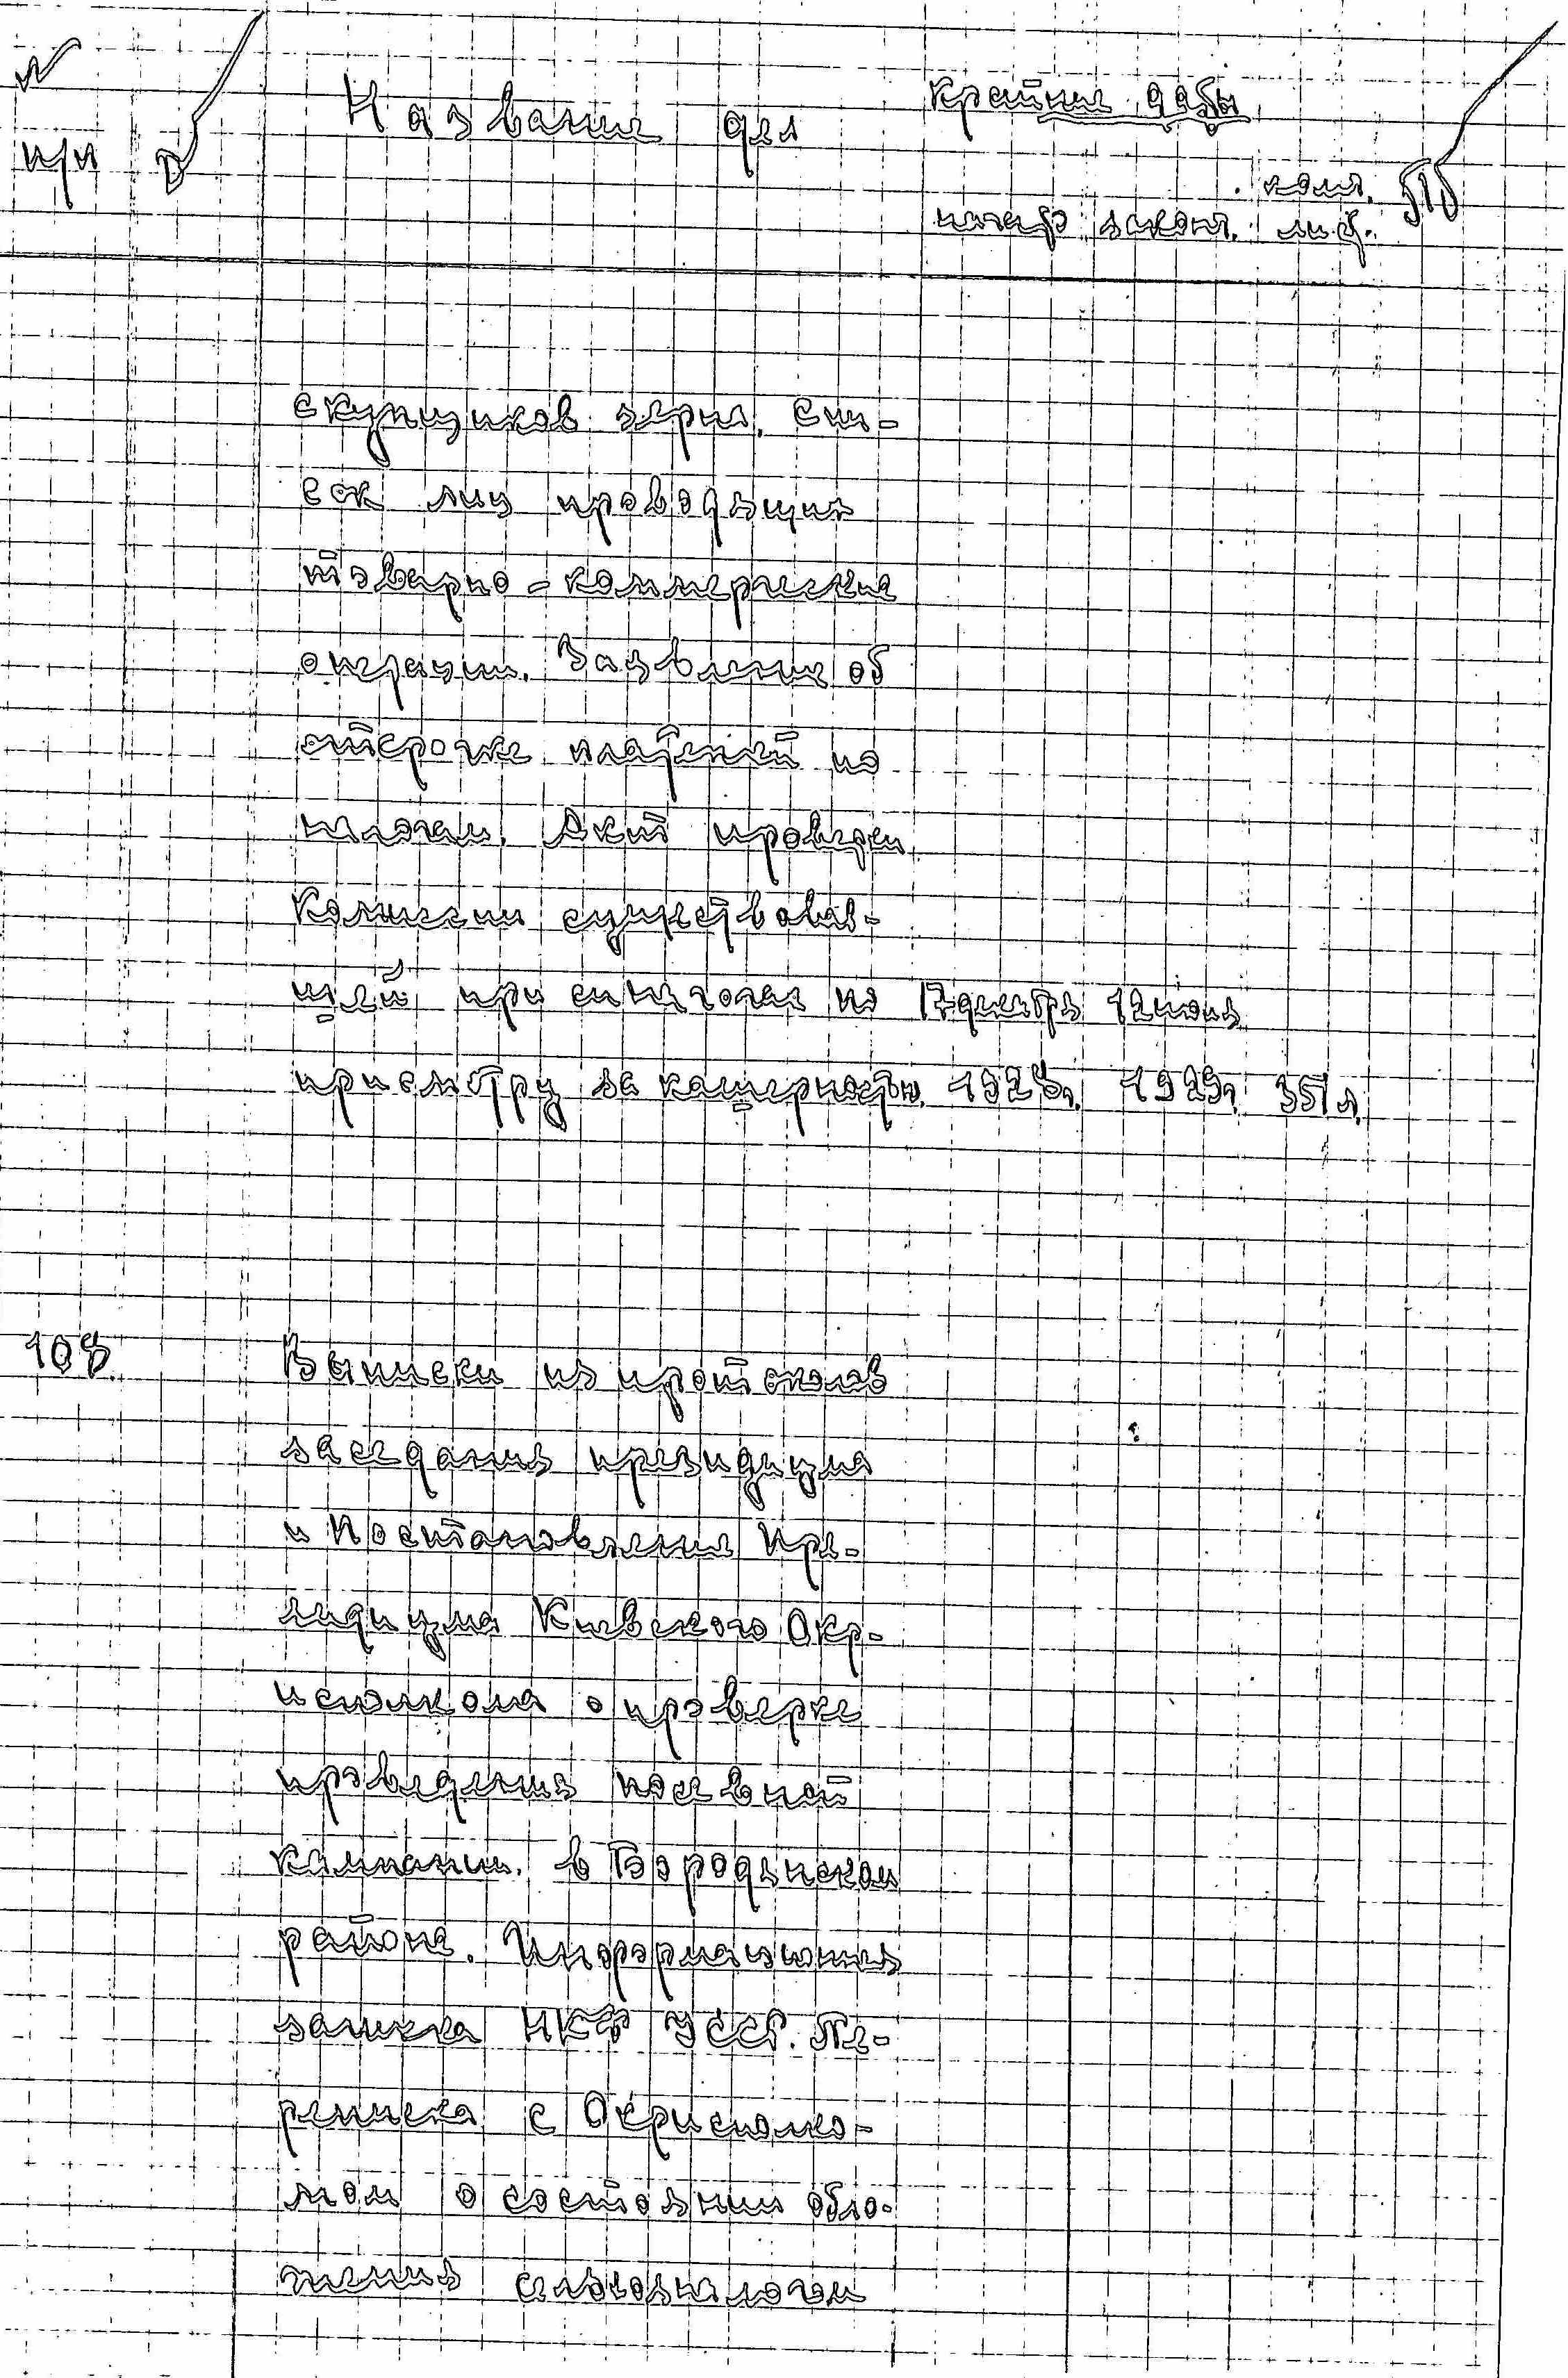 № Название дел крайние даты
п/п колич.
начало законч. лист.
скупщиков зерна. Спи-
сок лиц проводящих
товарно-коммерческие
операции. Заявление об
отсрочке платежей по
налогам. Акт проверки
Комиссии существовав-
шей при синагогах по 17 декабря 12 июля
присмотру за кашерностью. 1928г. 1929г. 351 л.
108. Выписки из протоколов
заседания президиума
и Постановление Пре-
зидиума Киевского Окр-
исполкома о проверке
проведения посевной
кампании. в Бородянском
районе. Информационная
записка НКФ УССР. Пе-
реписка с Окрисполко-
мом о состоянии обло-
жения сельхозналогом